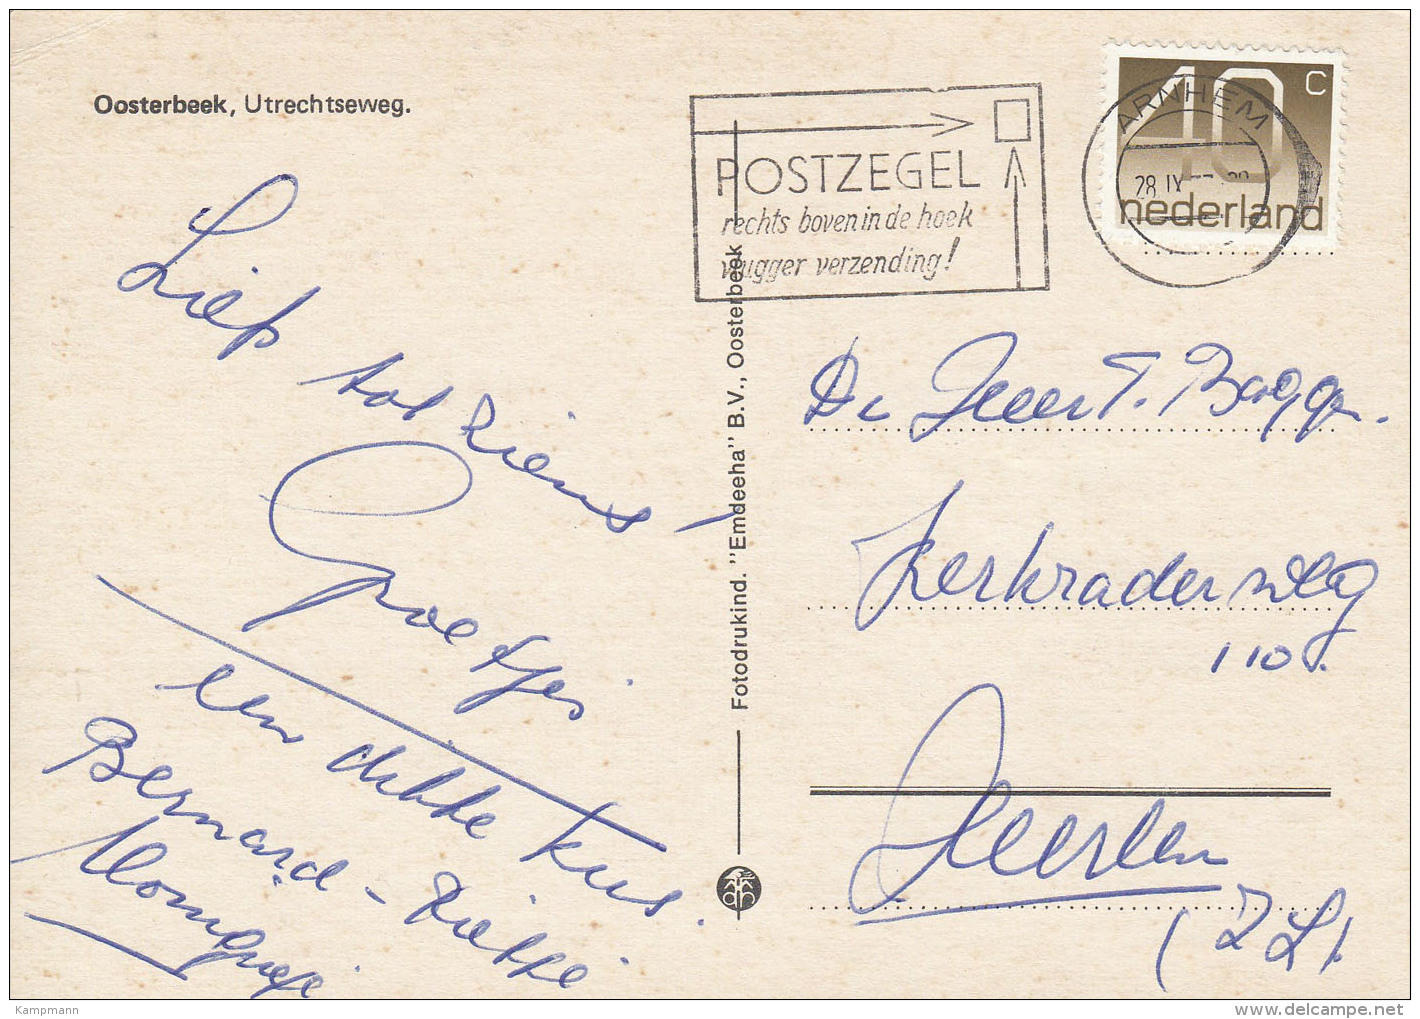 Oosterbeek, Utrechtseweg.
POSTZEGEL
rechts boven in de hoek
vlugger verzending!
ARNHEM
28 IX
40 C
nederland
Liefs
tot ziens!
Groetjes
een dikke kus.
Bernard -
Fotodrukind. "Emdeeha" B.V., Oosterbeek
Kerkraderweg
110.
Heerlen
(Z L).
Kampmann
delcampe.net